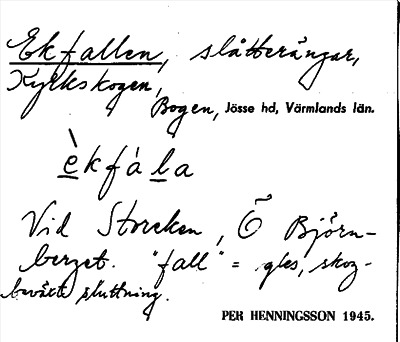 Ekfallen, slåtterängar,
Kyrkskogen,
Bogen, Jösse hd, Värmlands län.
èkfála
Vid Storeken, Ö Björn-
berget. "fall" = gles, skog-
beväxt sluttning.
PER HENNINGSSON 1945.